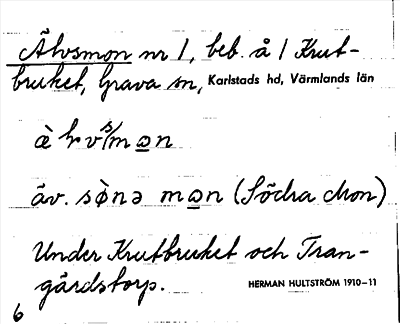 Älvsmon nr 1, beb. å / Krut-
bruket, Grava sn, Karlstads hd, Värmlands län
äv. sö̀nə mo̲n (Södra Mon)
Under Krutbruket och Tran-
gärdstorp. HERMAN HULTSTRÖM 1910–11
6